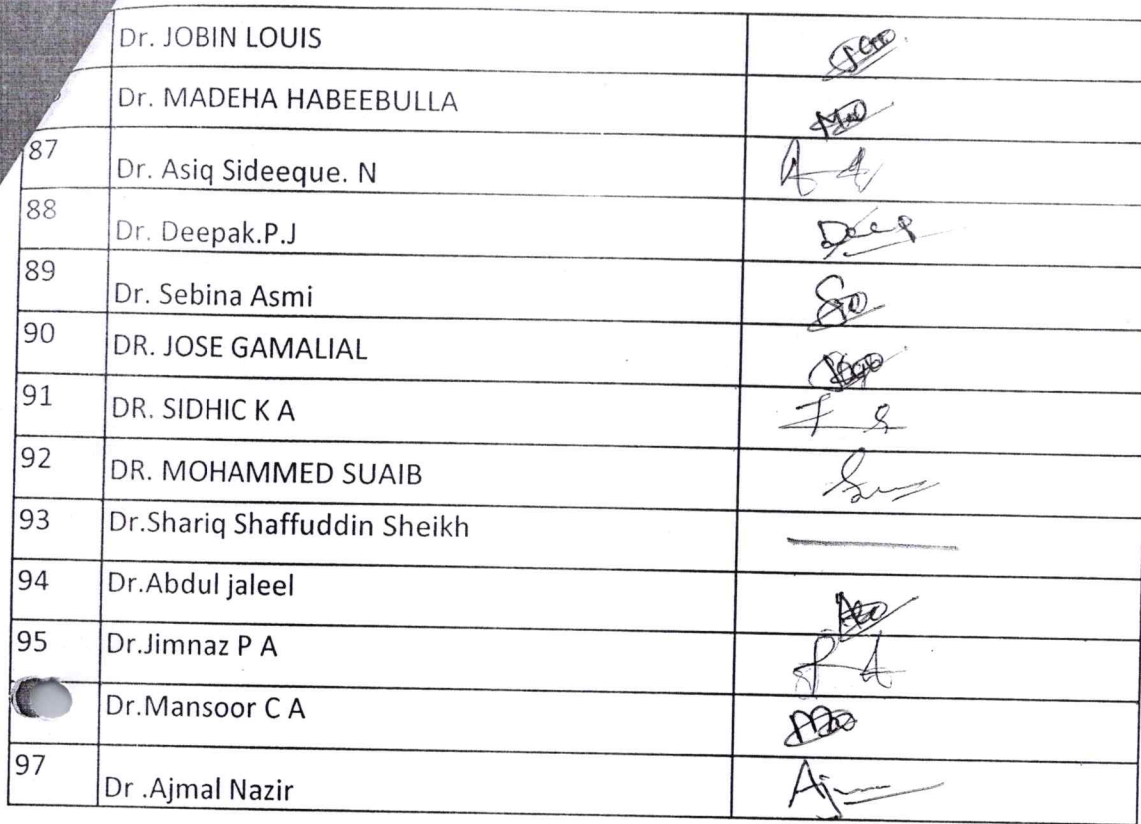 Dr. JOBIN LOUIS
Dr. MADEHA HABEEBULLA
87 Dr. Asiq Sideeque. N
88 Dr. Deepak.P.J Deep
89 Dr. Sebina Asmi
90 DR. JOSE GAMALIAL
91 DR. SIDHIC K A
92 DR. MOHAMMED SUAIB
93 Dr.Shariq Shaffuddin Sheikh
94 Dr.Abdul jaleel
95 Dr.Jimnaz P A
Dr.Mansoor C A
97 Dr .Ajmal Nazir